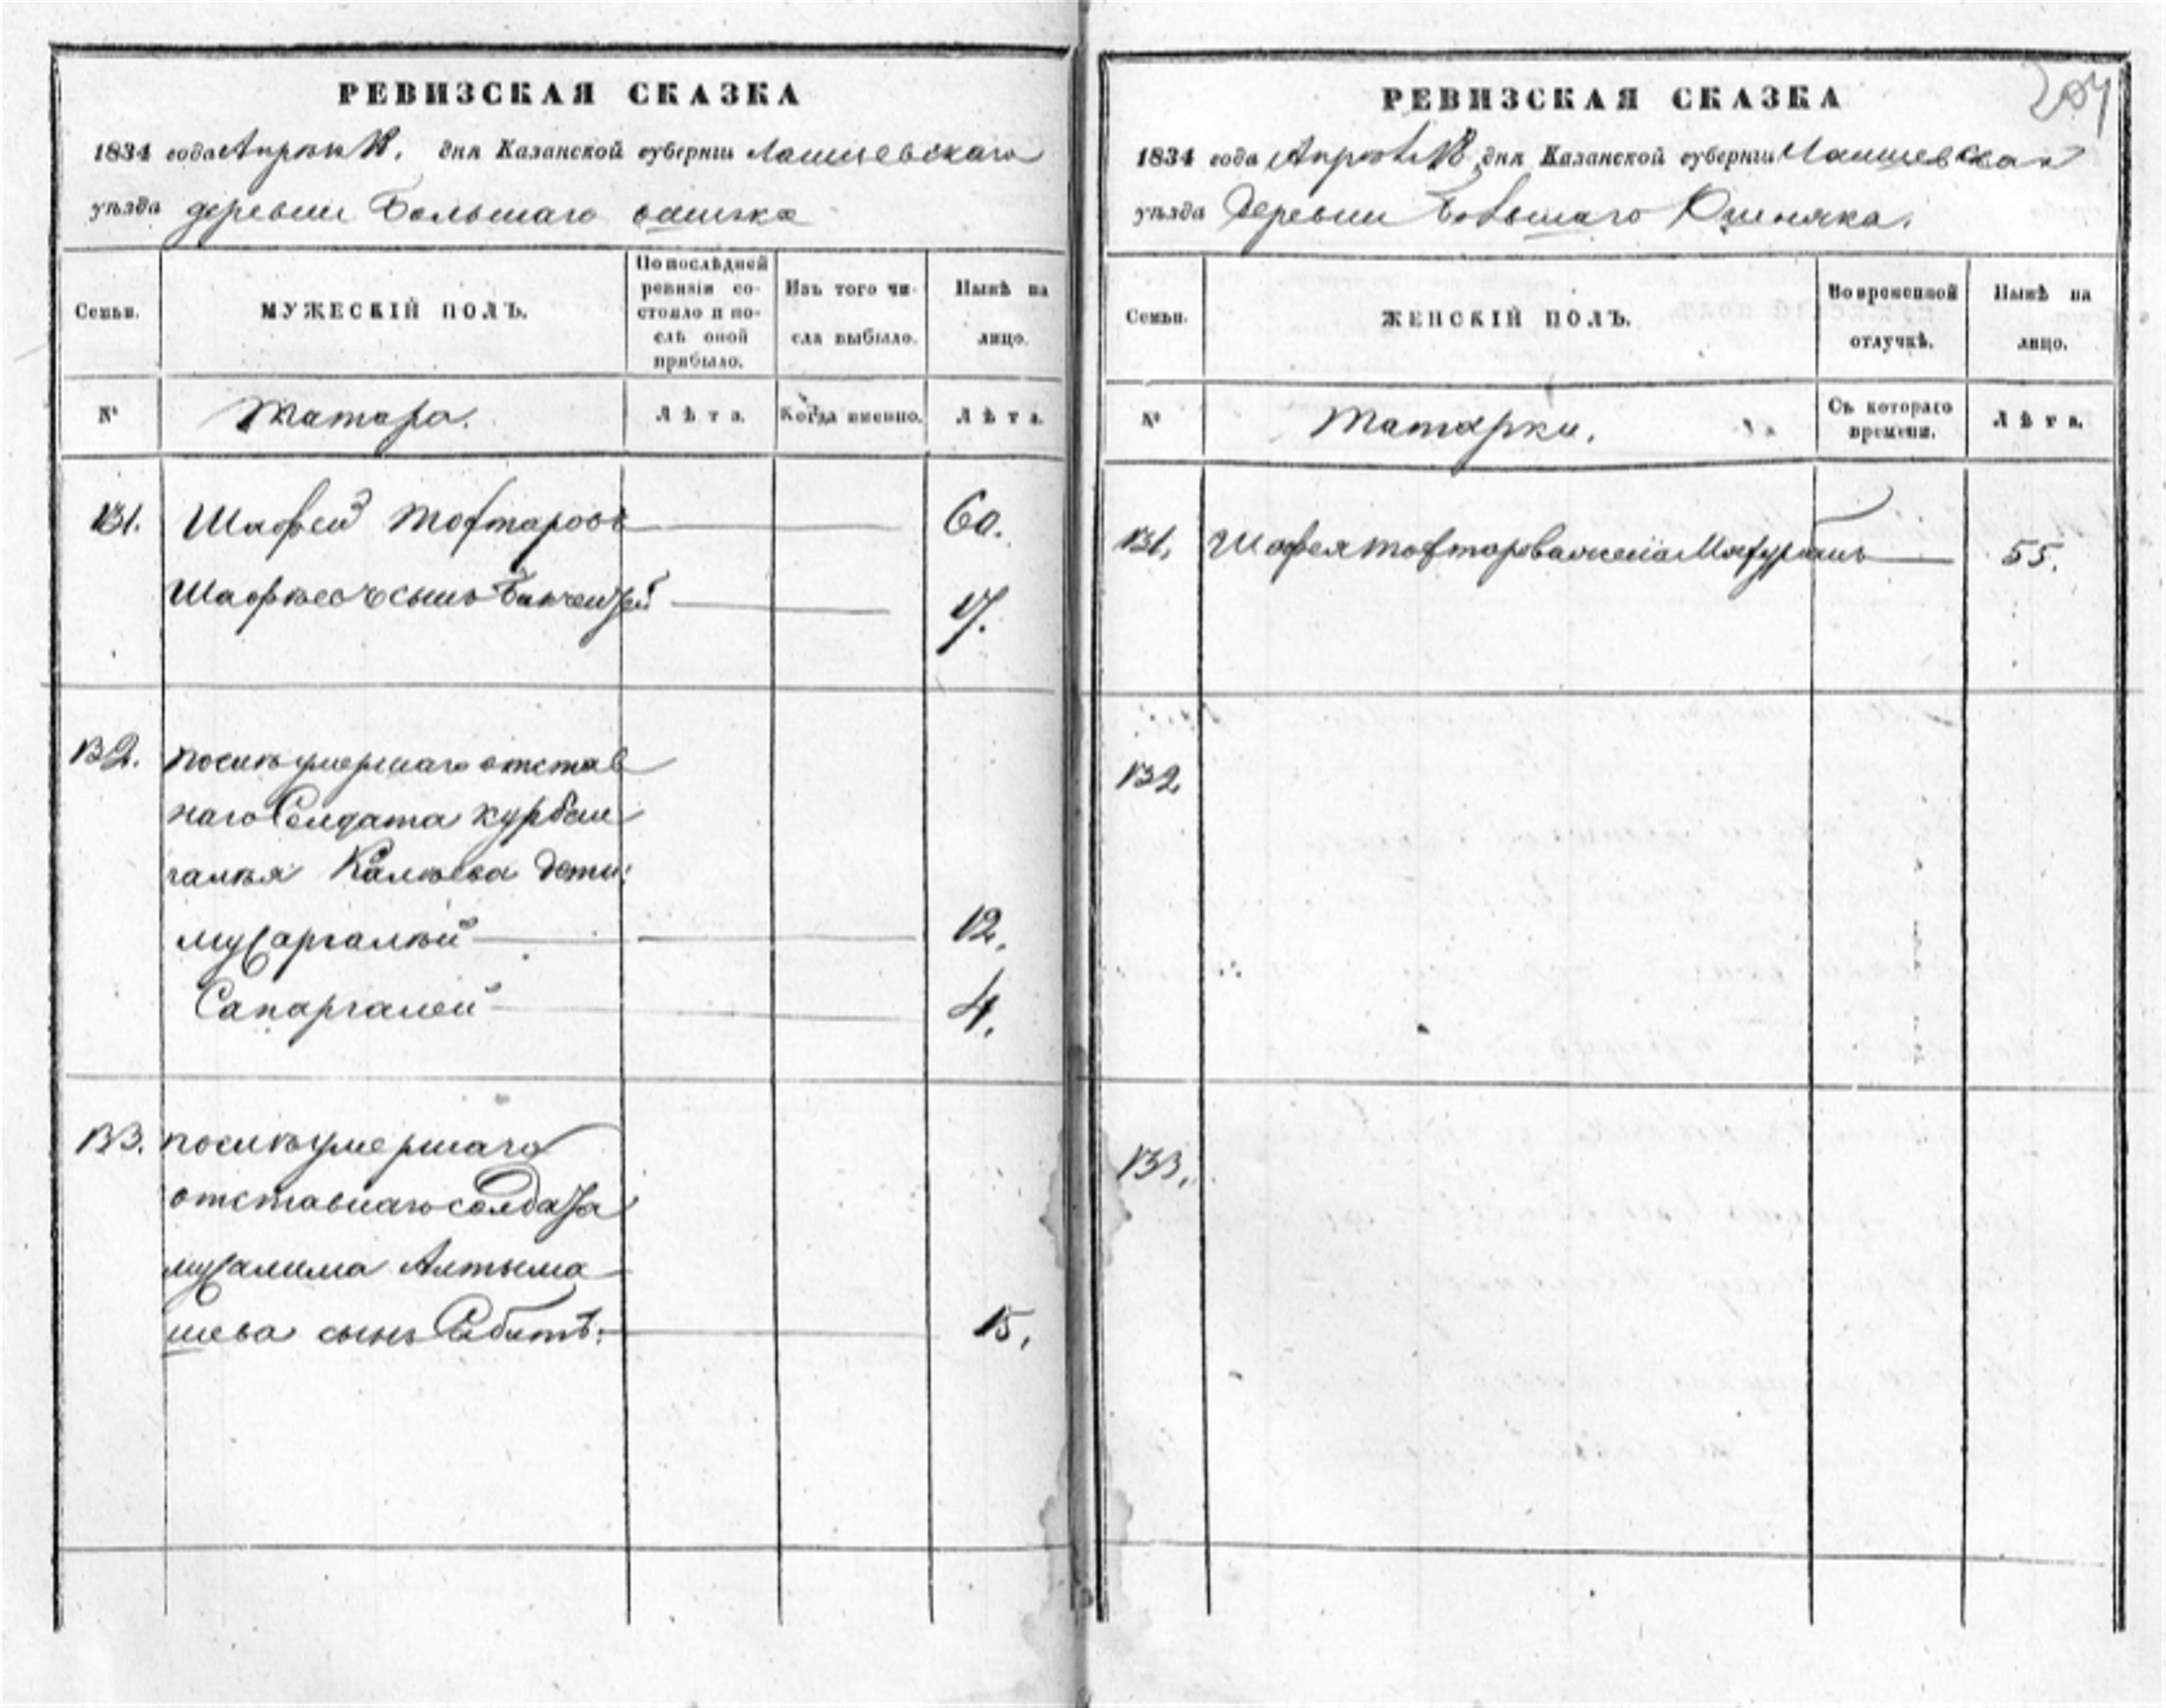 РЕВИЗСКАЯ СКАЗКА
1834 года Апреля 18. дня Казанской губерніи Лаишевскаго
уѣзда деревни Большаго
Семьи.
МУЖЕСКІЙ ПОЛЪ.
По послѣдней
ревизіи со-
стояло и по-
слѣ оной
прибыло.
Изъ того чи-
сла выбыло.
Нынѣ на
лицо.
№
Татара.
Лѣта.
Когда именно.
Лѣта.
131. Шафей Тохтаровъ 60.
сынъ 17.
132. послѣ умершаго отстав
наго Солдата Курбан
галѣя Калѣева дети:
Мусаргалѣй 12.
Сапаргалей 4.
133. послѣ умершаго
отставнаго солдата
Мусалима Алтыма
шева сынъ Сабитъ: 15.
204
РЕВИЗСКАЯ СКАЗКА
1834 года Апреля 18 дня Казанской губерніи Лаишевскаго
уѣзда Деревни Большаго Ошняка.
Семьи.
ЖЕНСКІЙ ПОЛЪ.
Во временной
отлучкѣ.
Нынѣ на
лицо.
№
Татарки.
Съ котораго
времени.
Лѣта.
131. Шафея Тохтарова жена 55.
132
133.